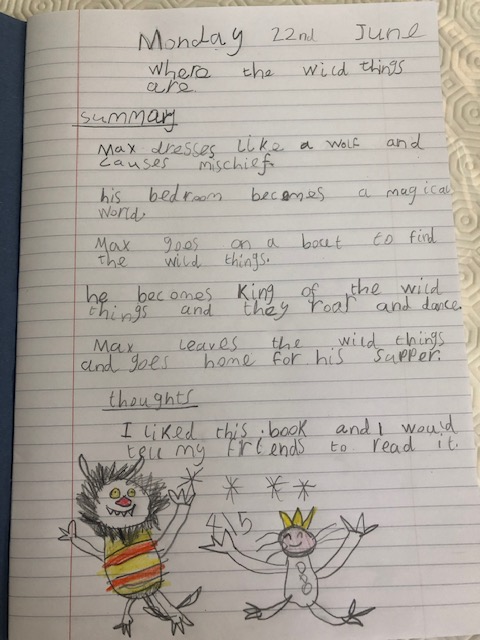 Monday 22nd June
where the wild things
are
summary
Max dresses like a wolf and
causes mischief.
his bedroom becomes a magical
world.
Max goes on a bout to find
the wild things.
he becomes King of the wild
things and they roar and dance.
Max leaves the wild things
and goes home for his supper.
thoughts
I liked this book and I would
tell my friends to read it.
4\5